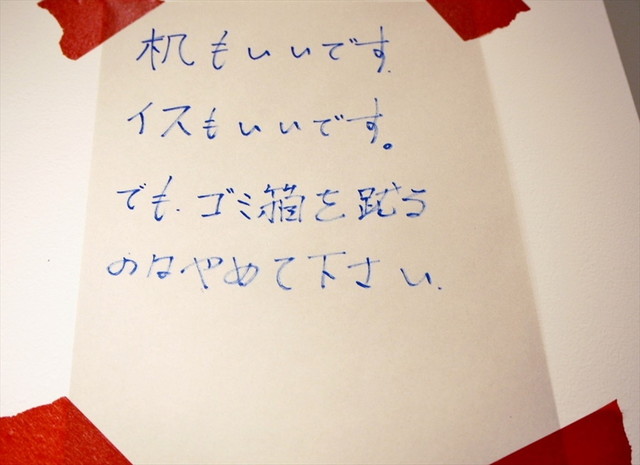 机もいいです.
イスもいいです。
でも.ゴミ箱を蹴る
のはやめて下さい.